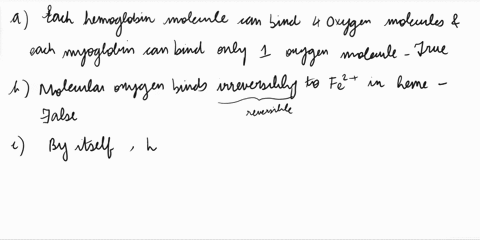 a) Each hemoglobin molecule can bind 4 Oxygen molecules &
each myoglobin can bind only 1 oxygen molecule - True
b) Molecular oxygen binds irreversibly to Fe²⁺ in heme -
False
reversible
c) By itself, h